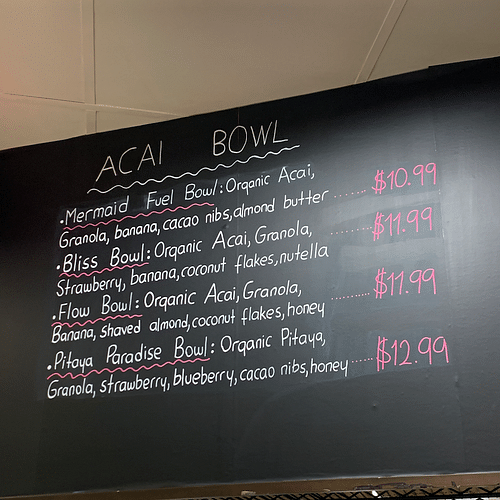 ACAI BOWL
• Mermaid Fuel Bowl: Organic Acai,
Granola, banana, cacao nibs, almond butter ....... $10.99
• Bliss Bowl: Organic Acai, Granola, .......... $11.99
Strawberry, banana, coconut flakes, nutella
• Flow Bowl: Organic Acai, Granola, .......... $11.99
Banana, shaved almond, coconut flakes, honey
• Pitaya Paradise Bowl: Organic Pitaya,
Granola, strawberry, blueberry, cacao nibs, honey ...... $12.99